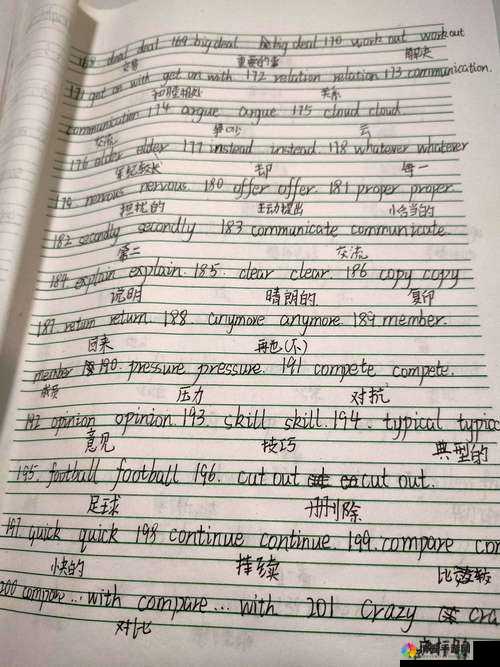 168 deal deal 169 big deal big deal 170 work out work out
交易 重要的事 解决
171 get on with get on with 172 relation relation 173 communication.
和睦相处 关系
communication 174 argue argue 175 cloud cloud
交流 争吵 云
176 elder elder 177 instead instead 178 whatever whatever
年纪较长 却 每一
179 nervous nervous. 180 offer offer. 181 proper proper.
担忧的 主动提出
182 secondly secondly 183 communicate communicate.
第二 交流
184. explain explain. 185. clear clear. 186 copy copy
说明 晴朗的 复印
187. return return. 188. anymore anymore. 189 member.
回来 再也(不)
member 190. pressure pressure. 191 compete compete.
成员 压力 对抗
192 opinion opinion. 193. skill skill. 194. typical typical
意见 技巧 典型的
195. football football 196. cut out cut out.
足球 删除
197. quick quick 198 continue continue. 199. compare com
快的 持续 比较
200 compare... with compare... with 201 crazy cra
对比